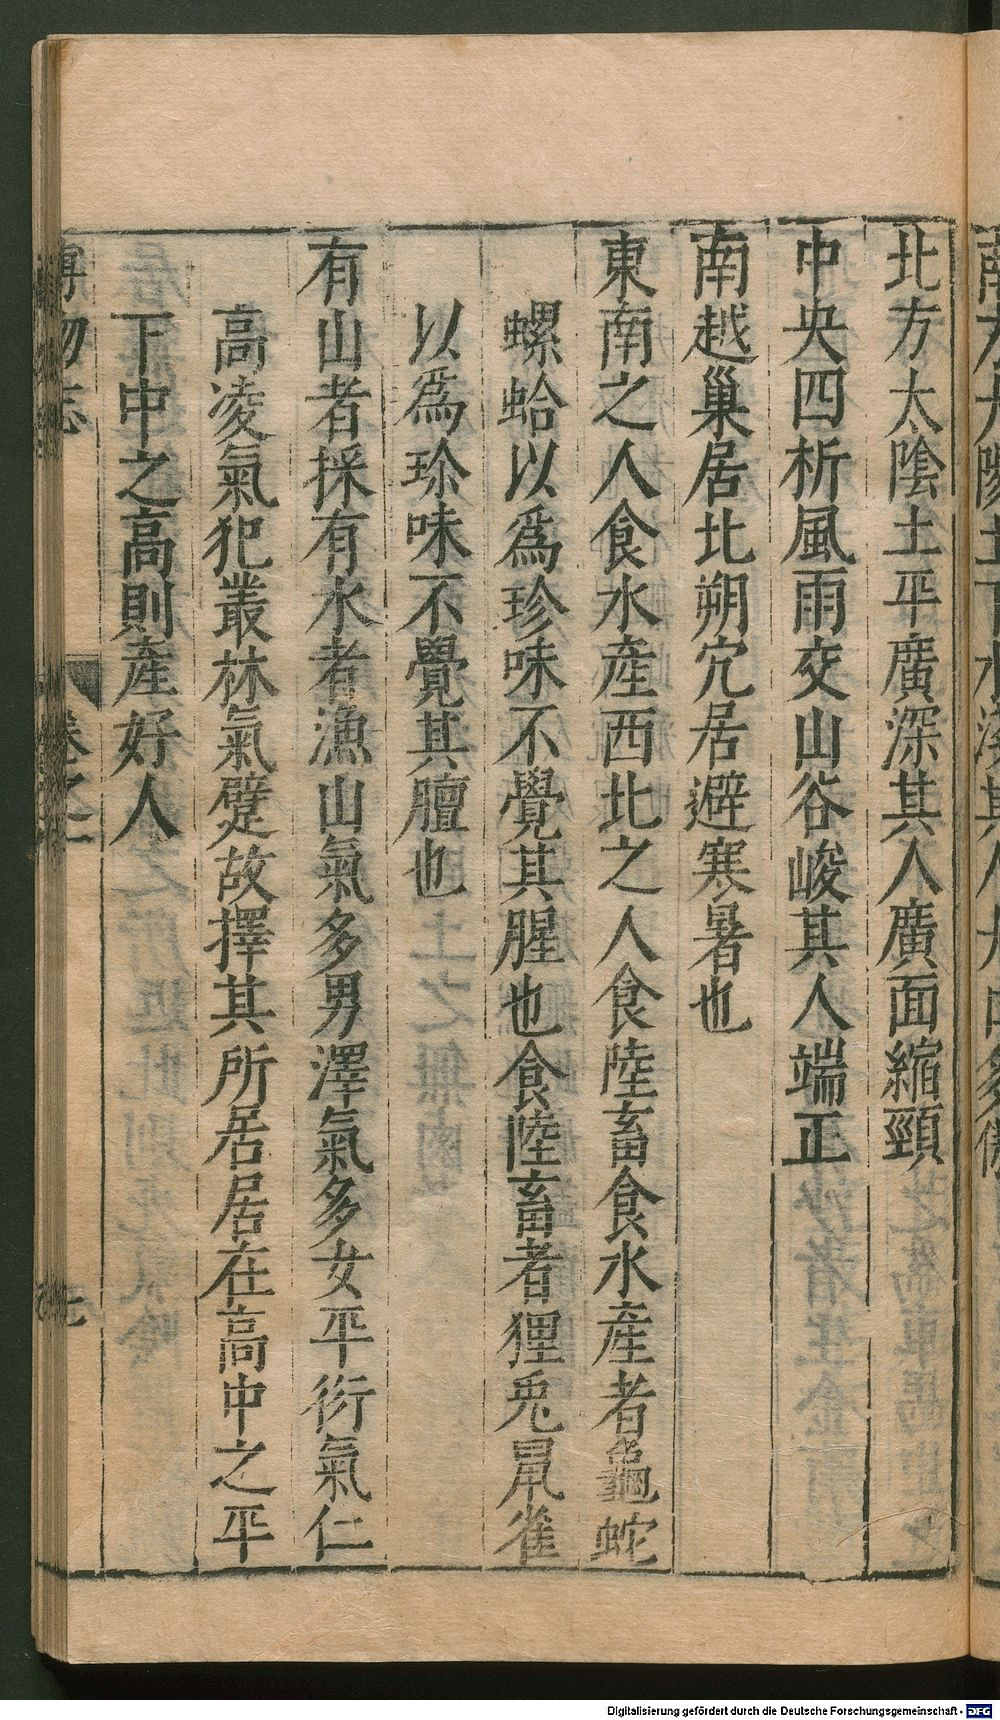 北方太陰土平廣深其人廣面縮頸
中央四析風雨交山谷峻其人端正
南越巢居北朔穴居避寒暑也
東南之人食水產西北之人食陸畜食水產者龜蛇
螺蛤以爲珍味不覺其腥也食陸畜者狸兎鼠雀
以爲珍味不覺其膻也
有山者採有水者漁山氣多男澤氣多女平衍氣仁
高凌氣犯叢林氣躄故擇其所居居在高中之平
下中之高則產好人
物志
卷之一
Digitalisierung gefördert durch die Deutsche Forschungsgemeinschaft - DFG